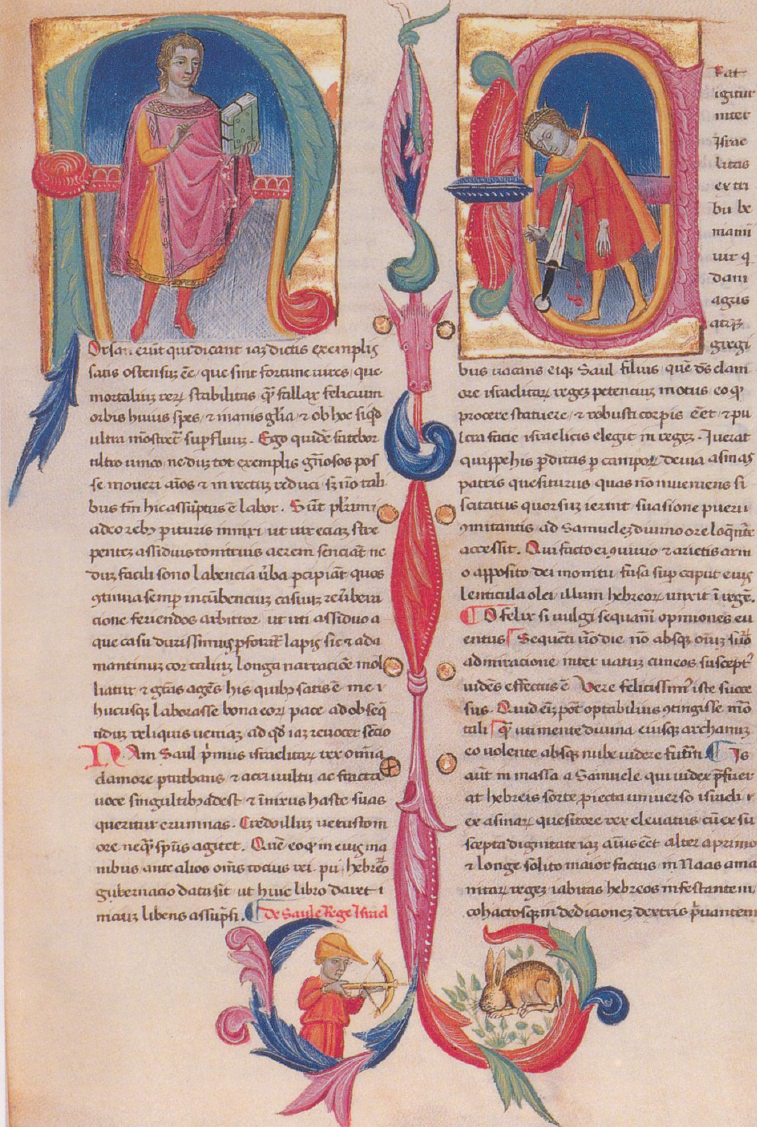 Orsan erūt qui dicant iaz dictis exemplis
satis ostensuz ēē, que sint fortune uires, que
mortaliuz rerū stabilitas q̄ fallax felicium
orbis huius spes, ⁊ inanis glīa, ⁊ ob hoc siqd
ultra mōstret supfluū. Ego quidē fatebor
ultro unico ne duz tot exemplis gn̄osos pos
se moueri aīos ⁊ in rectuz reduci. sz nō tali
bus tm̄ hic assūptus ē labor. Sūt plurimi
adeo rebȝ
pentes assiduis tonitruis aerem senciāt ne
duz facili sono labencia ūba pcipiāt quos
ꝯtinua semp incūbenciuz casuuz reūbera
cione feriendos arbittor. ut uti assiduo a
que casu durissimus pforat᷑ lapis sic ⁊ ada
mantinuz cor taliuz longa narracōe mol
liatur ⁊ gr̄us agēs his quibȝ satis ē me i
hucusqȝ laborasse bona cor̄ pace ad obseq
uduz reliquis ueniaz, ad qd̄ iaz reuocer
Nam Saul p̄mus israelitaꝝ rex
damore ac uultu ac fracta
uoce singultibȝ adest ⁊ īnixus haste suas
queritur erumnas. Credo illuz uetusto m
ore neqȝ spūs agitet. Quē eoqȝ in euiz ma
nibus ante alios om̄s tocius rei pu hebreo
gubernacio data sit ut huic libro daret i
niciuz libens assūpsi. De Saule Rege Israel
Fuit
igitur
inter
Israe
litas
ex tri
bu be
niami
uir q
dam
agris
atqȝ
gregi
bus uacans eiqȝ Saul filius, que ds̄ clam
ore israelitaꝝ regez petenciuz motus eo qȝ
procere stature, ⁊ robusti corpis ēēt ⁊ pu
lcra facie israelicis elegit in regez. Iuerat
quippe his pditas p campoꝝ deuia asinas
patris quesiturus quas nō inueniens si
scitatus quorsuz ierint suasione pueri
ꝯmitantis ad Samuelez diuino ore loqn̄te
accessit. Qui facto ei ꝯuiuio ⁊ arietis arm
o apposito dei monitu fusa sup caput eius
lenticula olei illum hebreoꝝ unxit ī regē.
O felix si uulgi sequam̄ opiniones eu
entus Sequēti nō die nō absqȝ oīuz suo
admiracione inter uatuz cuneos suscept᷑
uidēs effectus ē Vere felicissim᷑ iste succe
sus. Quid ei᷑ pōt optabilius ꝯtingisse mō
tali q̄ uti mente diuina eiusqȝ archaniz
eo uolente absqȝ nube uidere futm̄. Is
aut̄ in massa a Samuele qui uidex p̄fuer
at hebreis sorte piecta uniuerso israeli r
ex asinaꝝ quesitore rex eleuatus cū ex su
scepta dignitate iaz aīus ēēt alter a primo
⁊ longe solito maior factus in Naas ama
nitaꝝ regez iabitas hebreos infestantem,
cohactosqȝ in dedicionez dextris p̄uantem